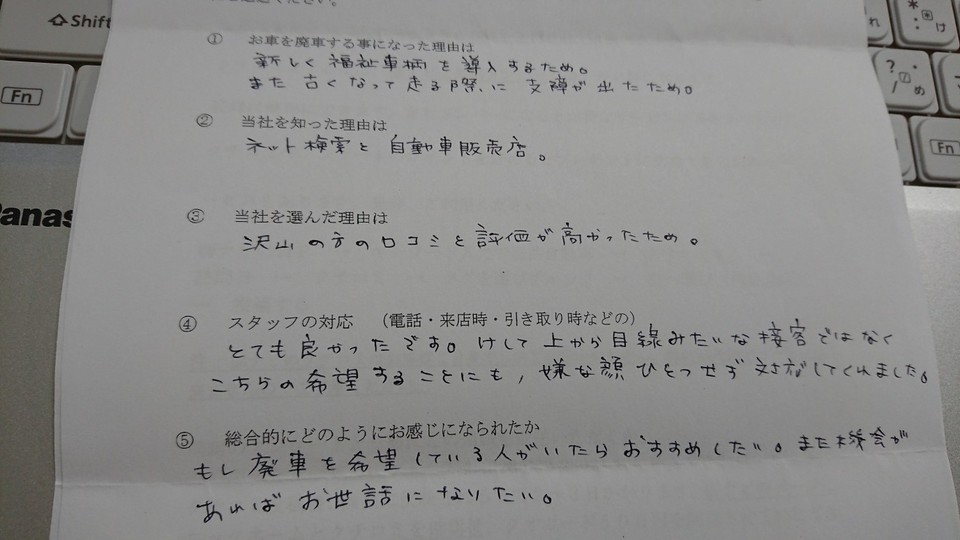 ① お車を廃車する事になった理由は
新しく 福祉車輌 を 導入するため。
また 古くなって 走る際に 支障が 出たため。
② 当社を知った理由は
ネット検索と 自動車販売店。
③ 当社を選んだ理由は
沢山の方の口コミと評価が高かったため。
④ スタッフの対応 （電話・来店時・引き取り時などの）
とても良かったです。けして上から目線みたいな接客ではなく
こちらの希望することにも,嫌な顔ひとつせず対応してくれました。
⑤ 総合的にどのようにお感じになられたか
もし廃車を希望している人がいたらおすすめしたい。また機会が
あればお世話になりたい。
Shift
Fn
Panas
れ
け
?
/
め
Fn